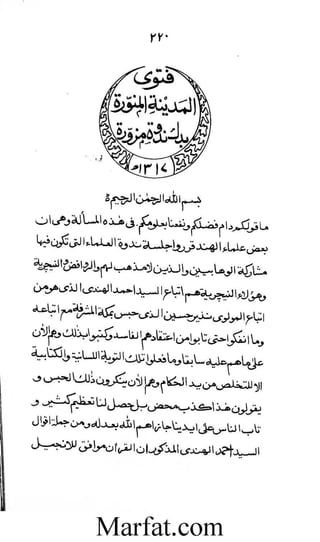 ٢٢٠
فتوى
المدينة المنورة
بدك ندوة مزورة
١٣١٧ھ
بسم الله الرحمن الرحيم
ما قولكم دام فضلكم ونفعنا بعلومكم. فى هذه المسألة وهى ان
بعض علماء الهند قرروا جلسة ندوة العلماء التى تكون فيها
مشاركة الوهابيين والذين لا مذهب لهم والروافض والنيچرية
وهؤلاء النيچرية هم اتباع السيد احمد الهندى الذى هو من
اتباع المولوى نذير حسين الذى حبس بمكة المشرفة مع اتباعه
وما انفكوا حتى تابوا من اعتقادهم الفاسد وكتبوا بذلك وهم الآن
على ما هم عليه سابقا وما فعلوا تلك التوبة اللسانية والكتابية
الا للتخلص من يد الحكام وهم الآن ينكرون ذلك الحبس و
يقولون هذا كذب محض بل حصل لنا تعظيم كثير و
تاب الناس على ايدينا جازاهم الله بعدله ومن جملة اقوال
السيد احمد الهندى المذكور ان القران موافق للانجيل
Marfat.com